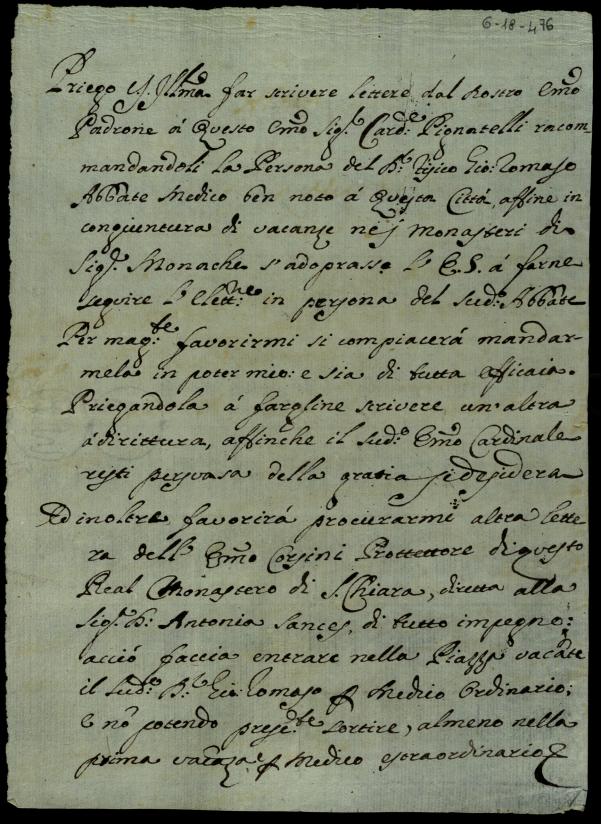 6-18-476
Priego V. Illma far scrivere lettere dal Nostro Emo
Padrone á Questo Emo Sigr. Carde. Pignatelli racom-
mandandoli la Persona del Dr. fisico Gio: Tomaso
Abbate Medico ben noto á Questa Cittá, affine in
congiuntura di vacanze nej Monasteri di
Sigre. Monache s'adoprasse l'E.S. á farne
seguire l'Elettne. in persona del sudo. Abbate
Per magte. favorirmi si compiacerá mandar-
mela in poter mio: e sia di tutta efficacia.
Priegandola á fargline scrivere un'altra
á dirittura, affinche il sudo. Emo Cardinale
resti persuasa della gratia si desidera
Ed inoltre favorirá procurarmi altra lette
ra dell' Emo Corsini Prottettore di questo
Real Monastero di S. Chiara, diretta alla
Sigra. D. Antonia Sances, di tutto impegno:
acció faccia entrare nella Piazza vacate
il sudo. Dr. Gio: Tomaso p Medico Ordinario;
e nó potendo presete. sortire, almeno nella
prima vacáza p Medico estraordinario